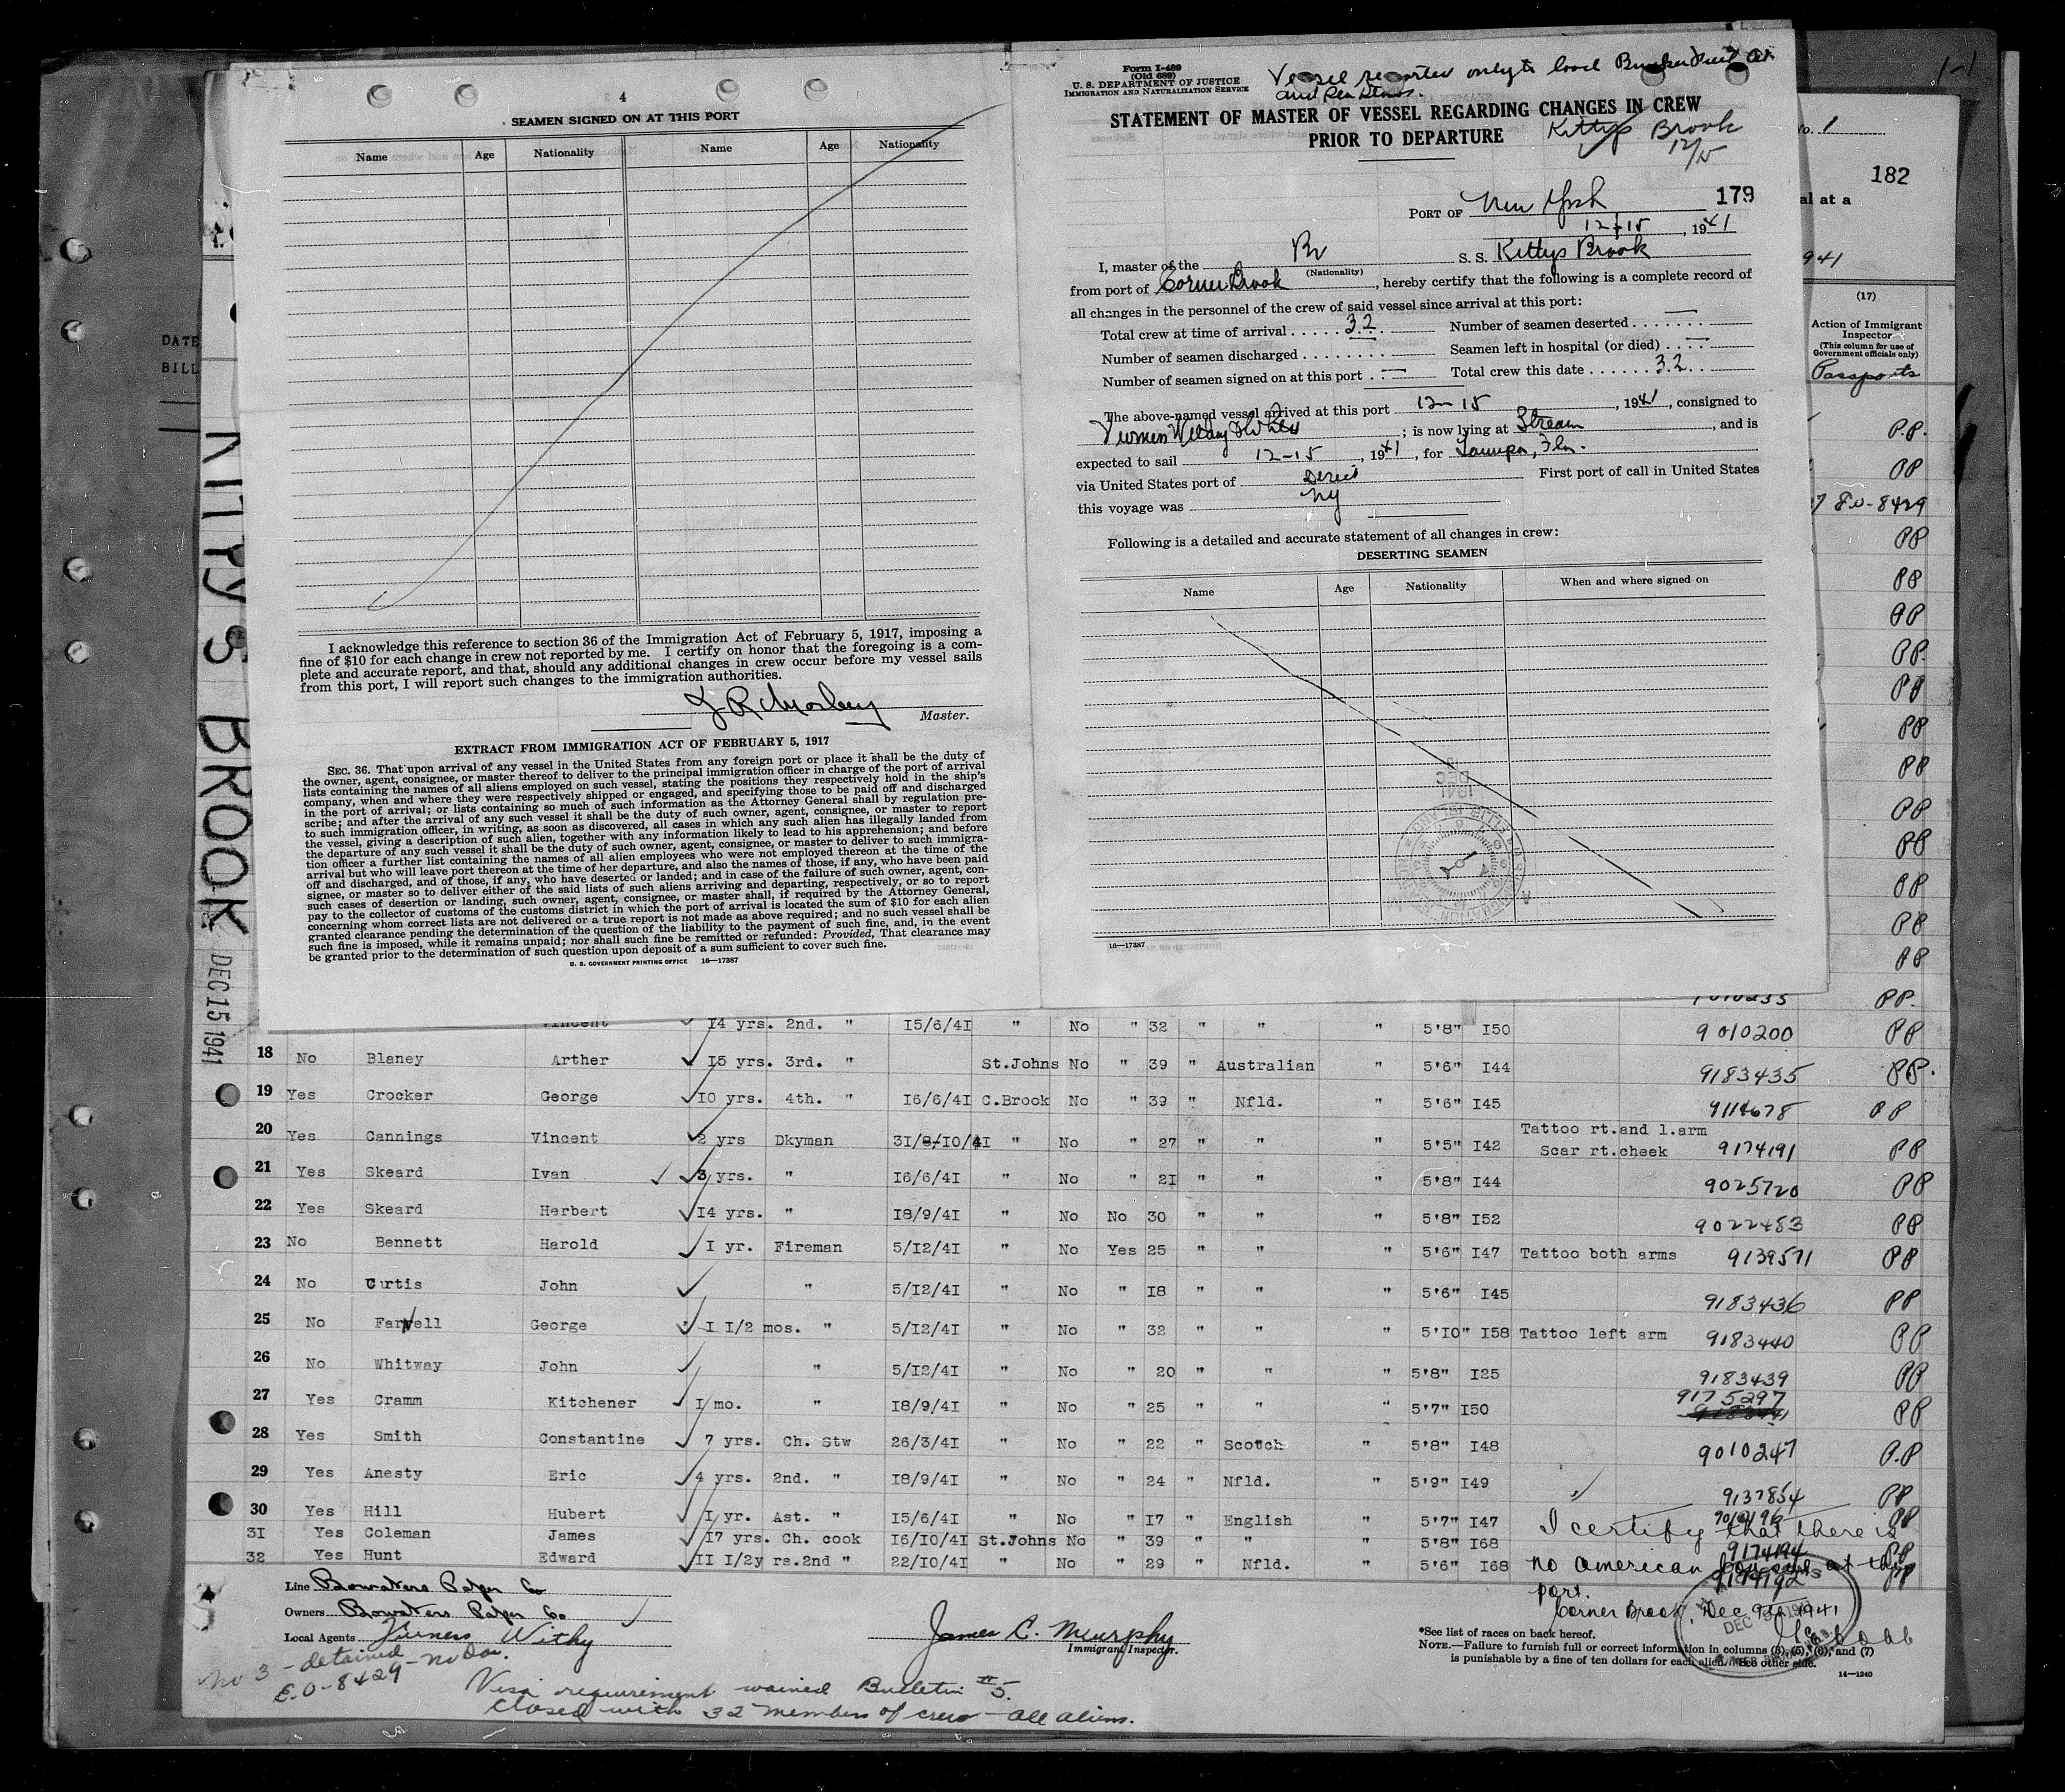 4
SEAMEN SIGNED ON AT THIS PORT
Name Age Nationality Name Age Nationality
I acknowledge this reference to section 36 of the Immigration Act of February 5, 1917, imposing a
fine of $10 for each change in crew not reported by me. I certify on honor that the foregoing is a com-
plete and accurate report, and that, should any additional changes in crew occur before my vessel sails
from this port, I will report such changes to the immigration authorities.
Master.
EXTRACT FROM IMMIGRATION ACT OF FEBRUARY 5, 1917
SEC. 36. That upon arrival of any vessel in the United States from any foreign port or place it shall be the duty of
the owner, agent, consignee, or master thereof to deliver to the principal immigration officer in charge of the port of arrival
lists containing the names of all aliens employed on such vessel, stating the positions they respectively hold in the ship's
company, when and where they were respectively shipped or engaged, and specifying those to be paid off and discharged
in the port of arrival; or lists containing so much of such information as the Attorney General shall by regulation pre-
scribe; and after the arrival of any such vessel it shall be the duty of such owner, agent, consignee, or master to report
to such immigration officer, in writing, as soon as discovered, all cases in which any such alien has illegally landed from
the vessel, giving a description of such alien, together with any information likely to lead to his apprehension; and before
the departure of any such vessel it shall be the duty of such owner, agent, consignee, or master to deliver to such immigra-
tion officer a further list containing the names of all alien employees who were not employed thereon at the time of the
arrival but who will leave port thereon at the time of her departure, and also the names of those, if any, who have been paid
off and discharged, and of those, if any, who have deserted or landed; and in case of the failure of such owner, agent, con-
signee, or master so to deliver either of the said lists of such aliens arriving and departing, respectively, or so to report
such cases of desertion or landing, such owner, agent, consignee, or master shall, if required by the Attorney General,
pay to the collector of customs of the customs district in which the port of arrival is located the sum of $10 for each alien
concerning whom correct lists are not delivered or a true report is not made as above required; and no such vessel shall be
granted clearance pending the determination of the question of the liability to the payment of such fine, and, in the event
such fine is imposed, while it remains unpaid; nor shall such fine be remitted or refunded: Provided, That clearance may
be granted prior to the determination of such question upon deposit of a sum sufficient to cover such fine.
U. S. GOVERNMENT PRINTING OFFICE 16—17387
Form I-489
(Old 689)
U. S. DEPARTMENT OF JUSTICE
IMMIGRATION AND NATURALIZATION SERVICE
Vessel reported only to load Bunker Fuel
STATEMENT OF MASTER OF VESSEL REGARDING CHANGES IN CREW
PRIOR TO DEPARTURE
Kittys Brook
12/15
PORT OF New York 179
12-15, 1941
I, master of the Br S. S. Kittys Brook
(Nationality)
from port of Corner Brook, hereby certify that the following is a complete record of
all changes in the personnel of the crew of said vessel since arrival at this port:
Total crew at time of arrival 32 Number of seamen deserted —
Number of seamen discharged Seamen left in hospital (or died) —
Number of seamen signed on at this port — Total crew this date 32
The above-named vessel arrived at this port 12-15, 1941, consigned to
Furness Withy; is now lying at Stream, and is
expected to sail 12-15, 1941, for Tampa, Fla.
via United States port of Direct First port of call in United States
this voyage was NY
Following is a detailed and accurate statement of all changes in crew:
DESERTING SEAMEN
Name Age Nationality When and where signed on
DEC 1941
16—17387
1-1
No. 1
182
al at a
941
(17)
Action of Immigrant
Inspector
(This column for use of
Government officials only)
Passports
P.P.
PP
7 E.O-8429
PP
PP
PP
PP.
PP
PP
PP
PP
PP
PP
PP
PP
DATE
BILL
KITTYS BROOK DEC 15 1941
7010233 PP.
Vincent 14 yrs. 2nd. " 15/6/41 " No " 32 " " " 5'8" 150 9010200 PP
18 No Blaney Arther 15 yrs. 3rd. " St.Johns No " 39 " Australian " 5'6" 144 9183435 PP.
19 Yes Crocker George 10 yrs. 4th. " 16/6/41 C.Brook No " 39 " Nfld. " 5'6" 145 9114678 PP
20 Yes Cannings Vincent 2 yrs Dkyman 31/8/10/41 " No " 27 " " " 5'5" 142 Tattoo rt.and l.arm
Scar rt.cheek 9174191 PP
21 Yes Skeard Ivan 3 yrs. " 16/6/41 " No " 21 " " " 5'8" 144 9025720 PP
22 Yes Skeard Herbert 14 yrs. " 18/9/41 " No No 30 " " " 5'8" 152 9022483 PP
23 No Bennett Harold 1 yr. Fireman 5/12/41 " No Yes 25 " " " 5'6" 147 Tattoo both arms 9139571 PP
24 No Curtis John " 5/12/41 " No " 18 " " " 5'6" 145 9183436 PP
25 No Farwell George 1 1/2 mos. " 5/12/41 " No " 32 " " " 5'10" 158 Tattoo left arm 9183440 PP
26 No Whitway John " 5/12/41 " No " 20 " " " 5'8" 125 9183439 PP
27 Yes Cramm Kitchener 1 mo. " 18/9/41 " No " 25 " " " 5'7" 150 9175297 PP
28 Yes Smith Constantine 7 yrs. Ch. Stw 26/3/41 " No " 22 " Scotch " 5'8" 148 9010247 P.P
29 Yes Anesty Eric 4 yrs. 2nd. " 18/9/41 " No " 24 " Nfld. " 5'9" 149 9137854 PP
30 Yes Hill Hubert 1 yr. Ast. " 15/6/41 " No " 17 " English " 5'7" 147 PP
31 Yes Coleman James 17 yrs. Ch. cook 16/10/41 St.Johns No " 39 " " " 5'8" 168 9174194 PP
32 Yes Hunt Edward 11 1/2y rs.2nd " 22/10/41 " No " 29 " Nfld. " 5'6" 168 9174192 PP
I certify that there is
no American Consul at this
port.
Corner Brook, Dec 9th 1941
Line Bowaters Paper Co
Owners Bowaters Paper Co
Local Agents Furness Withy
James C. Murphy
Immigrant Inspector.
*See list of races on back hereof.
NOTE.—Failure to furnish full or correct information in columns (3), (5), (6), and (7)
is punishable by a fine of ten dollars for each alien. See other side.
14—1240
No 3 - detained
E.O-8429 - no Doc.
Visa requirement waived Bulletin #5.
Closed with 32 members of crew — all aliens.